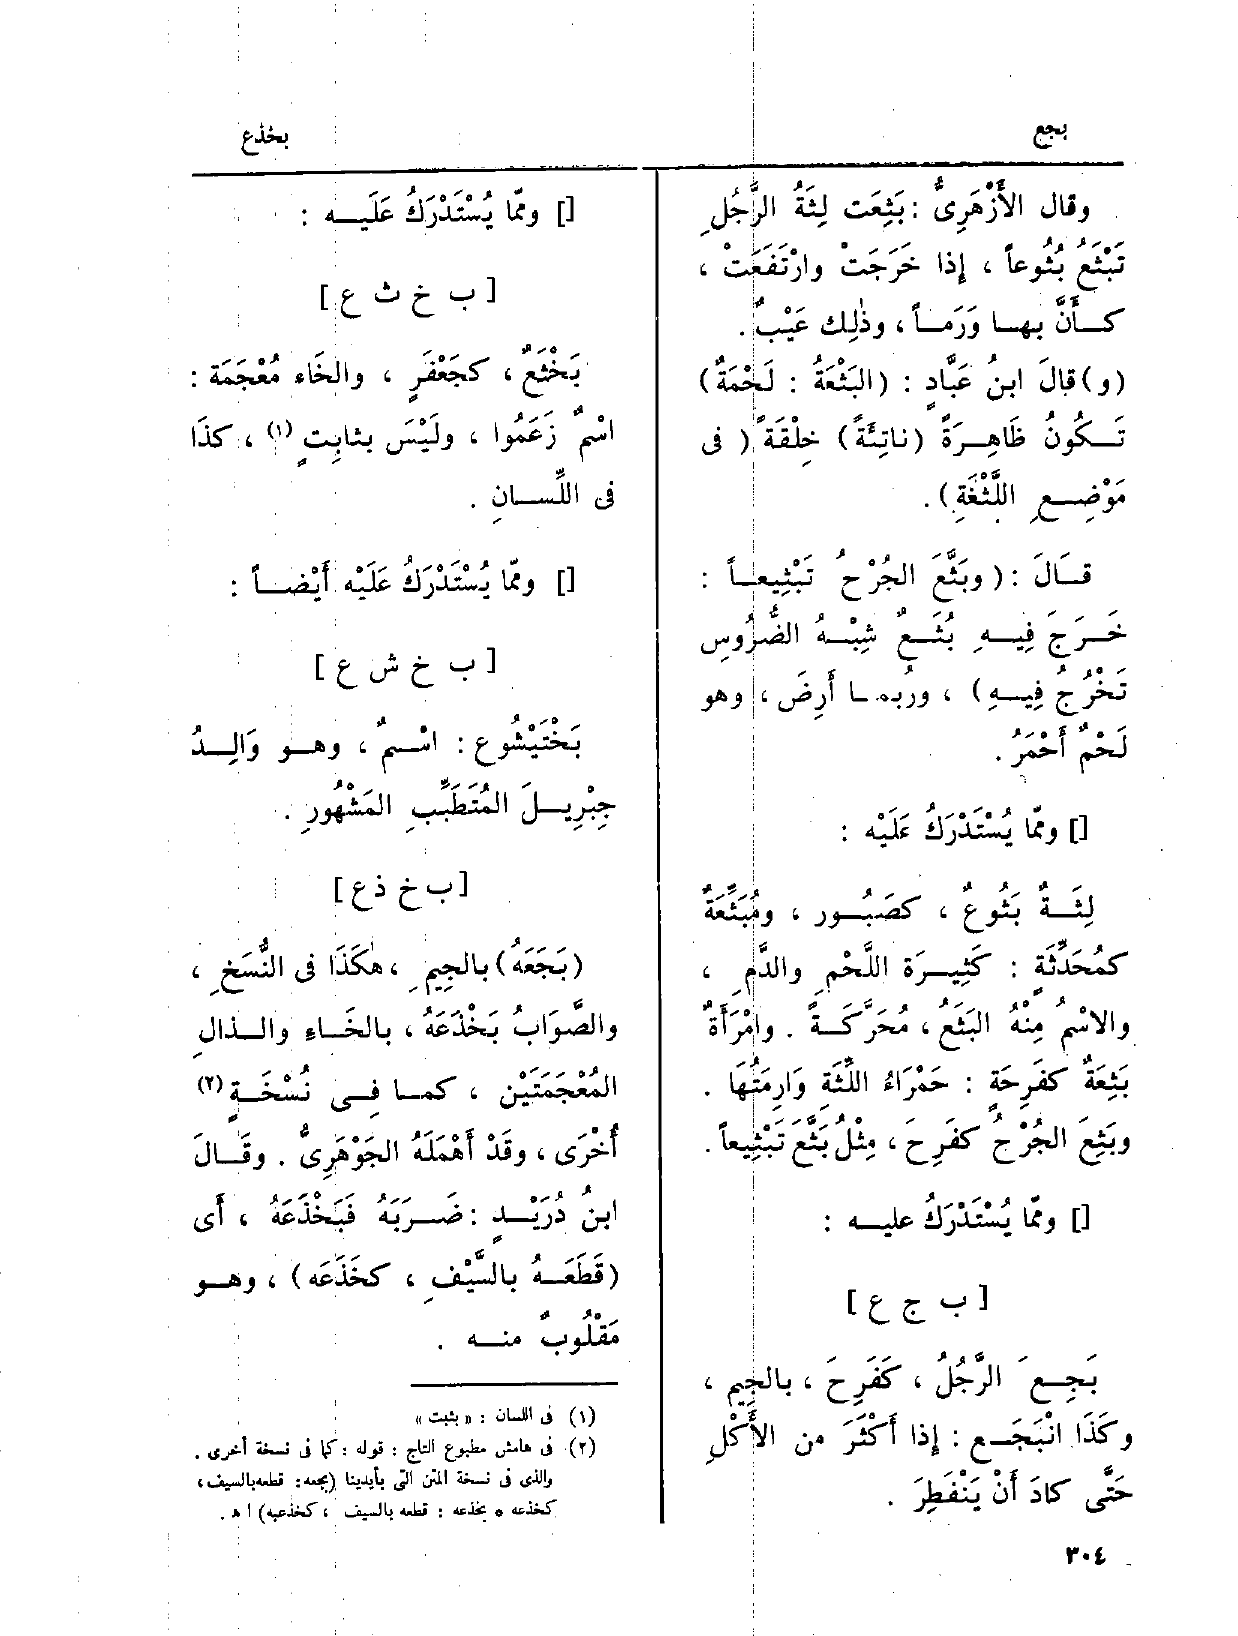 بجع
بخذع
وقال الأَزْهَرِىُّ : بَثِعَت لِثَةُ الرَّجُلِ
تَبْثَع بُثُوعاً ، إِذا خَرَجَتْ وارْتَفَعَتْ ،
كــأَنَّ بهـا وَرَمـاً ، وذٰلِك عَيْبٌ .
(و) قالَ ابنُ عَبَّادٍ : (البَثْعَةُ : لَحْمَةٌ)
تَـكُونُ ظَاهِـرَةً (ناتِئَةً) خِلْقَةً ( فى
مَوْضِـعِ اللَّثْغَةِ) .
قـالَ : ( وبَثَّعَ الجُرْحُ تَبْثِيعـاً :
خَـرَجَ فِيـهِ بُثَـعٌ شِبْـهُ الضُّرُوسِ
تَخْرُجُ فِيـهِ) ، ورُبمـا أَرِضَ ، وهو
لَحْمٌ أَحْمَرُ .
[] ومّا يُسْتَدْرَكُ عَلَيْه :
لِثَـةٌ بَثُوعٌ ، كصَبُـور ، ومُبَثِّعَةٌ
كمُحَدِّثَةٍ : كَثِيـرَة اللَّحْمِ والدَّمِ ،
والاسْمُ مِنْهُ البَثَعُ ، مُحَرَّكـةً . وامْرَأَةٌ
بَثِعَةٌ كفَرِحَةٍ : حَمْرَاءُ اللِّثَةِ وَارِمَتُهَا .
وبَثِعَ الجُرْحُ كفَرِحَ ، مِثْلُ بَثَّعَ تَبْثِيعاً .
[] ومّا يُسْتَدْرَكُ عليـه :
[ ب ج ع ]
بَجِـعَ الرَّجُلُ ، كَفَرِحَ ، بالجِيمِ ،
وكَذَا انْبَجَـع : إِذا أَكْثَرَ من الأَكْلِ
حَتَّى كادَ أَنْ يَنْفَطِرَ .
[] ومّا يُسْتَدْرَكُ عَلَيـه :
[ ب خ ث ع ]
بَخْثَعٌ ، كجَعْفَرٍ ، والخَاء مُعْجَمَة :
اسْمٌ زَعَمُوا ، ولَيْسَ بثابِتٍ (١) ، كذَا
فى اللِّسـانِ .
[] ومّا يُسْتَدْرَكُ عَلَيْه أَيْضـاً :
[ ب خ ش ع ]
بَخْتَيْشُوع : اسْـمٌ ، وهـو وَالِـدُ
جِبْرِيـلَ المُتَطَبِّبِ المَشْهُورِ .
[ ب خ ذ ع ]
(بَجَعَهُ) بالجِيمِ ، هٰكَذَا فى النُّسَخِ ،
والصَّوَابُ بَخْذَعَهُ ، بالخَـاءِ والـذالِ
المُعْجَمَتَيْن ، كمـا فِـى نُسْخَـةٍ (٢)
أُخْرَى ، وقَدْ أَهْمَلَهُ الجَوْهَرِىُّ . وقَـالَ
ابنُ دُرَيْـدٍ : ضَـرَبَهُ فبَخْذَعَهُ ، أَى
(قَطَعَـهُ بالسَّيْفِ ، كخَذَعَه) ، وهـو
مَقْلُوبٌ منـه .
(١) فى اللسان : « بثبت »
(٢) فى هامش مطبوع التاج : قوله : كما فى نسخة أخرى .
والذى فى نسخة المتن التى بأيدينا (بجعه : قطعه بالسيف ،
كخذعه * بخذعه : قطعه بالسيف ، كخذعبه) ا ه .
٣٠٤